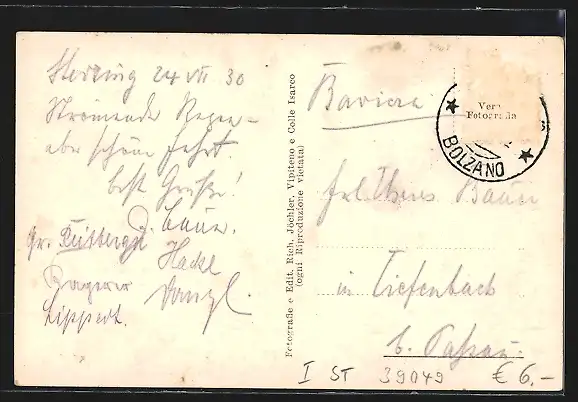 Sterzing 24 VII 30
Strömender Regen –
aber schöne Fahrt.
beste Grüße!
J. Bauer.
Gr.
Hackl
Dangl.
Lippert.
Fotografie e Edit. Rich. Jöchler, Vipiteno e Colle Isarco
(ogni Riproduzione vietata)
Baviera
Vera
Fotografia
BOLZANO
Frl. Theres Bauer
in Tiefenbach
b. Passau.
I ST 39049 € 6.–